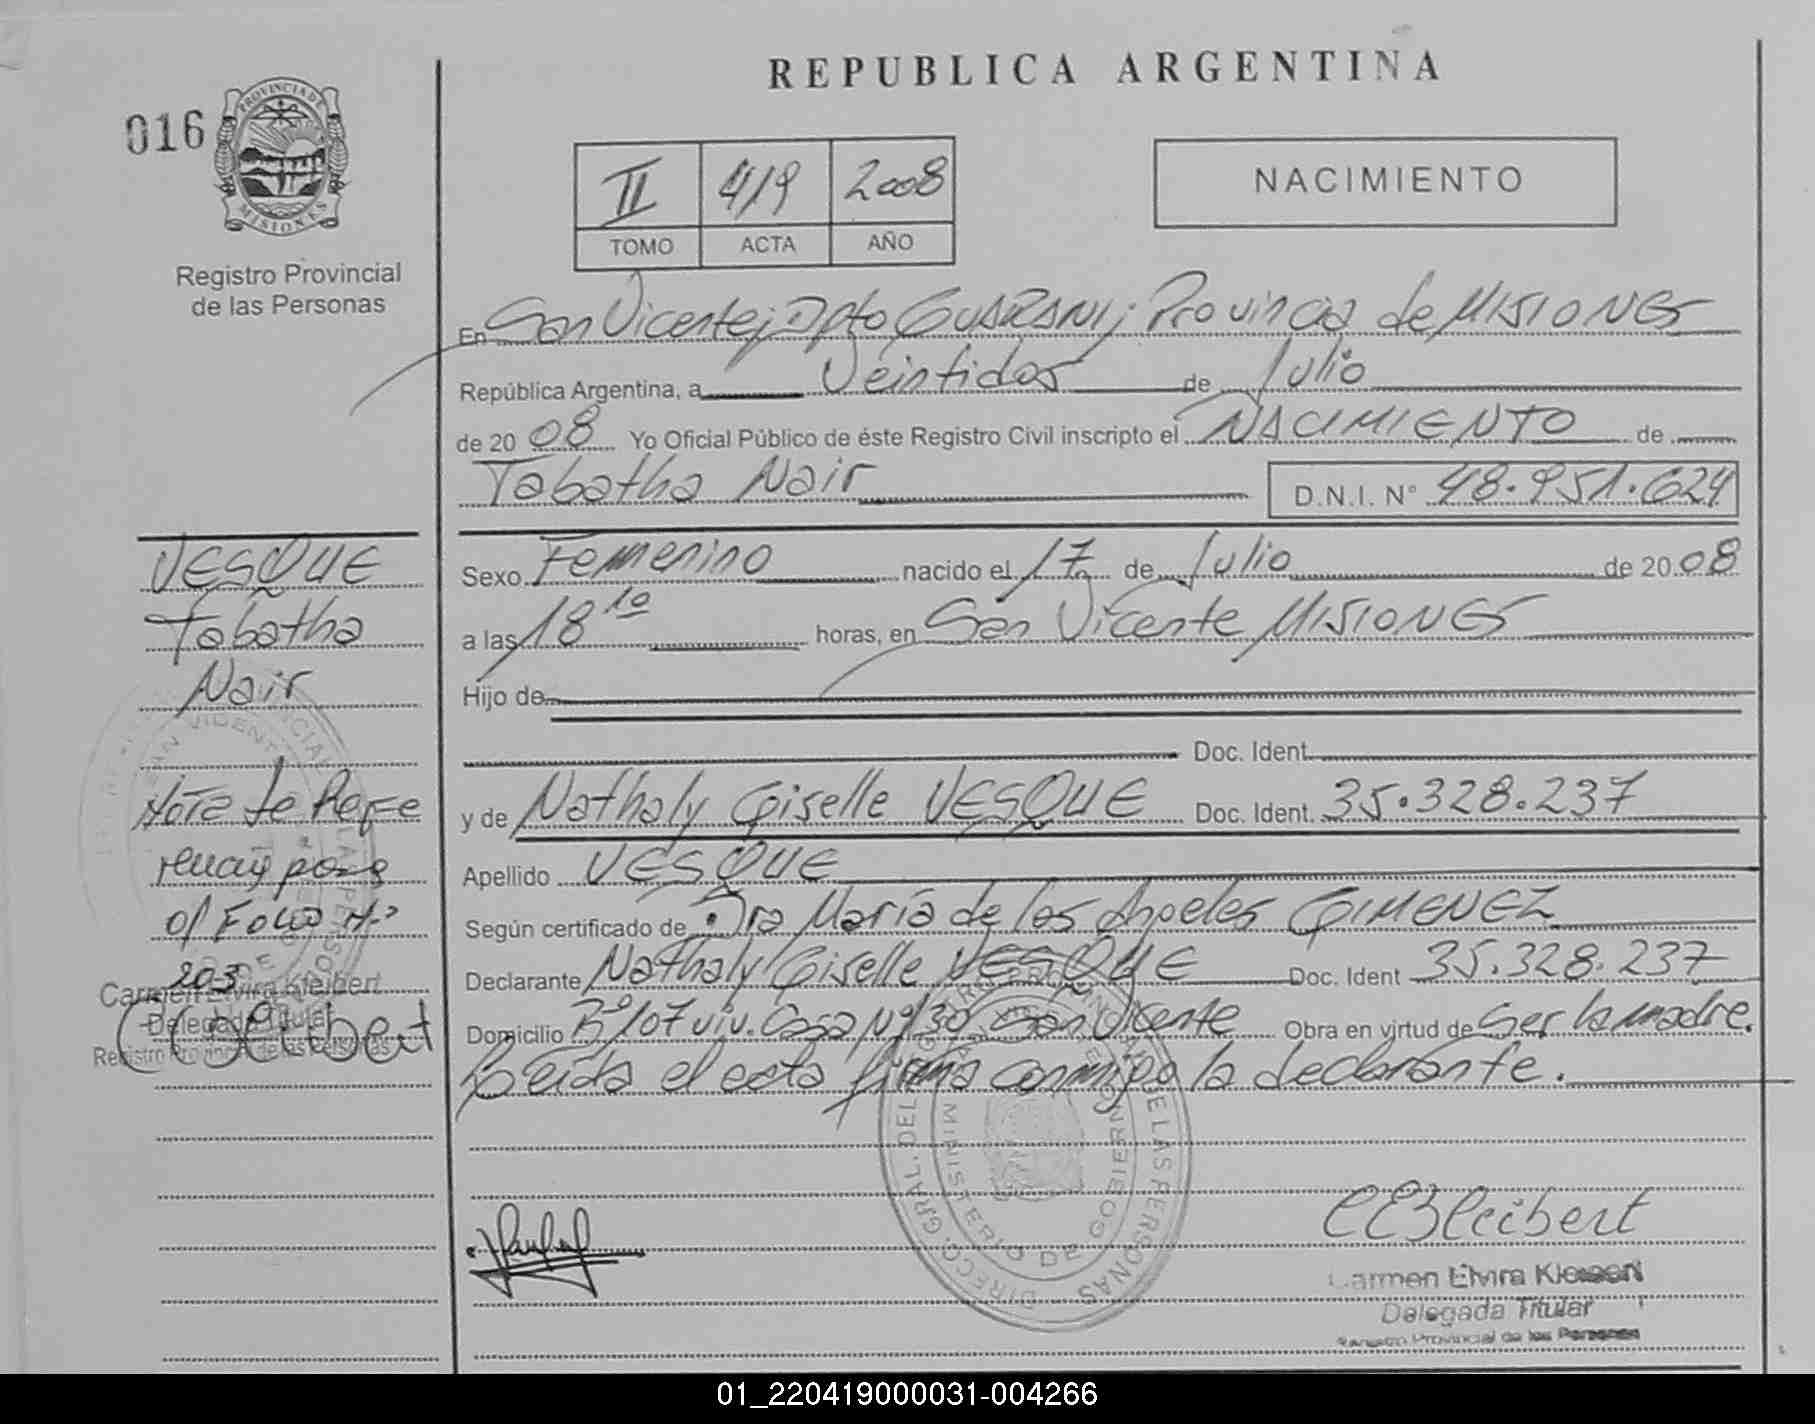 REPUBLICA ARGENTINA
016
PROVINCIA DE
MISIONES
Registro Provincial
de las Personas
II 419 2008
TOMO ACTA AÑO
NACIMIENTO
En San Vicente; Dpto GUARANI; Provincia de MISIONES
República Argentina, a Veintidos de Julio
de 20 08 Yo Oficial Público de éste Registro Civil inscripto el NACIMIENTO de
Tabatha Nair D.N.I. N° 48.951.624
Sexo Femenino nacido el 17 de Julio de 20 08
a las 18 10 horas, en San Vicente MISIONES
Hijo de
Doc. Ident.
y de Nathaly Giselle VESQUE Doc. Ident. 35.328.237
Apellido VESQUE
Según certificado de Dra María de los Angeles GIMENEZ
Declarante Nathaly Giselle VESQUE Doc. Ident 35.328.237
Domicilio B° 107 viv. Casa Nº 30 San Vicente Obra en virtud de Ser la madre.
Leída el acta firma conmigo la declarante.
VESQUE
Tabatha
Nair
Nota de Refe
rencia
o/ Folio Nº
203
Carmen Elvira Kleibert
Delegada Titular
Registro Provincial de las Personas
DIRECC. GRAL. DEL REGISTRO PROVINCIAL DE LAS PERSONAS
MINISTERIO DE GOBIERNO
SAN VICENTE
CEKleibert
Carmen Elvira Kleibert
Delegada Titular
Registro Provincial de las Personas
01_220419000031-004266